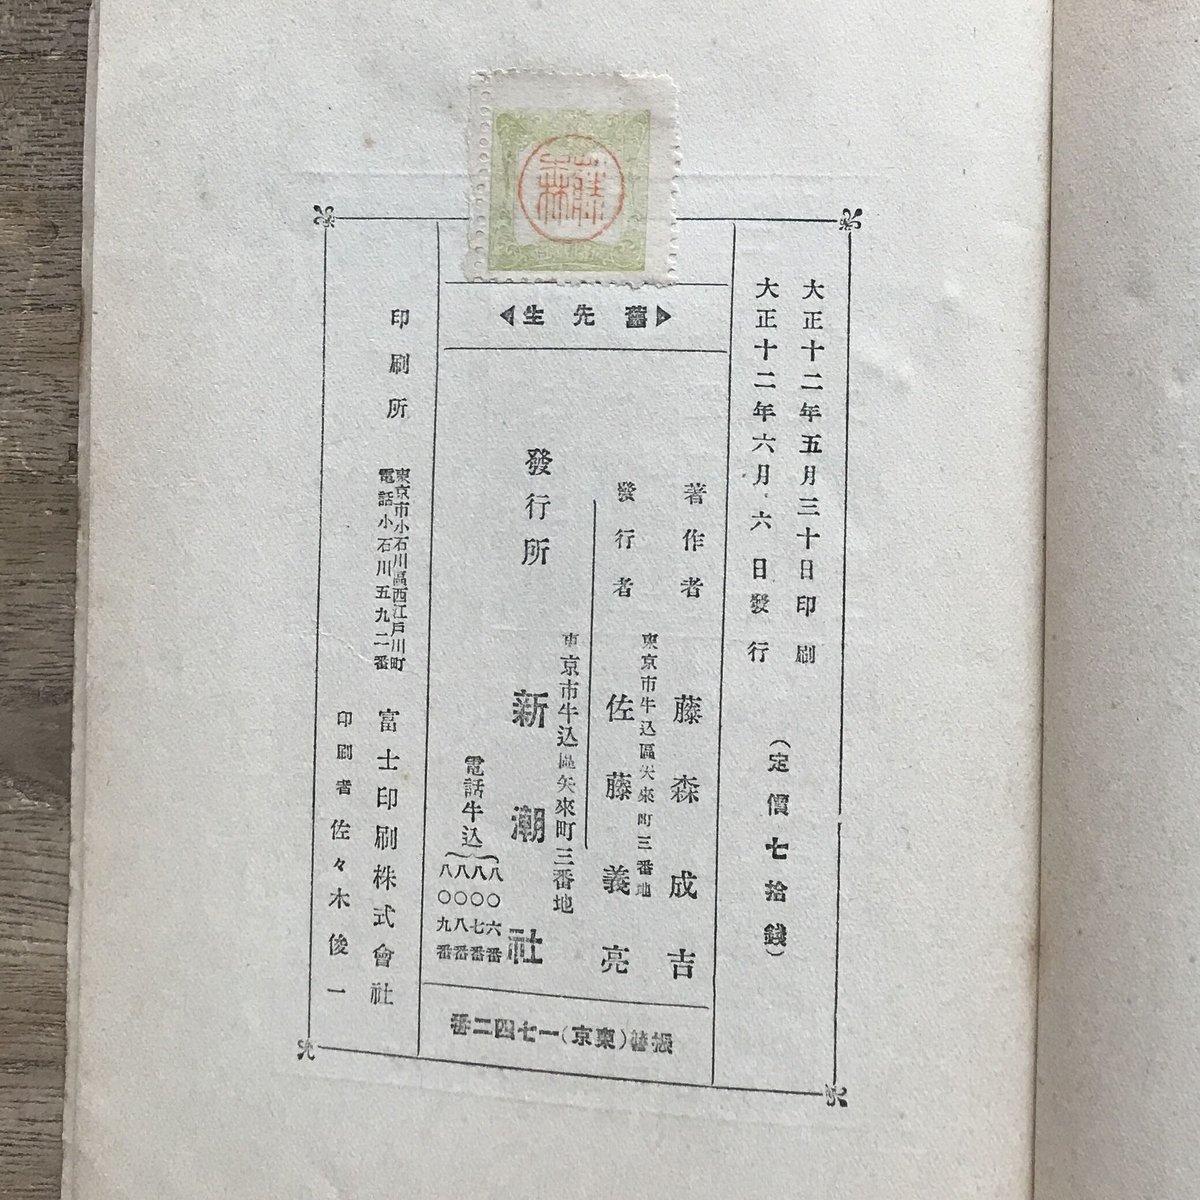 藤森
大正十二年五月三十日印刷
大正十二年六月六日發行
(定價七拾錢)
舊先生
著作者 藤森成吉
東京市牛込區矢來町三番地
發行者 佐藤義亮
東京市牛込區矢來町三番地
發行所 新潮社
電話牛込
八〇六番
八〇七番
八〇八番
八〇九番
振替(東京)一七四二番
印刷所
東京市小石川區西江戸川町
電話小石川五九二番
富士印刷株式會社
印刷者 佐々木俊一